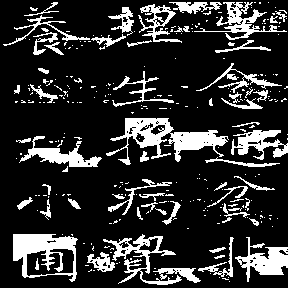 豈念通貧非
理生拙病覺
養心功小圃